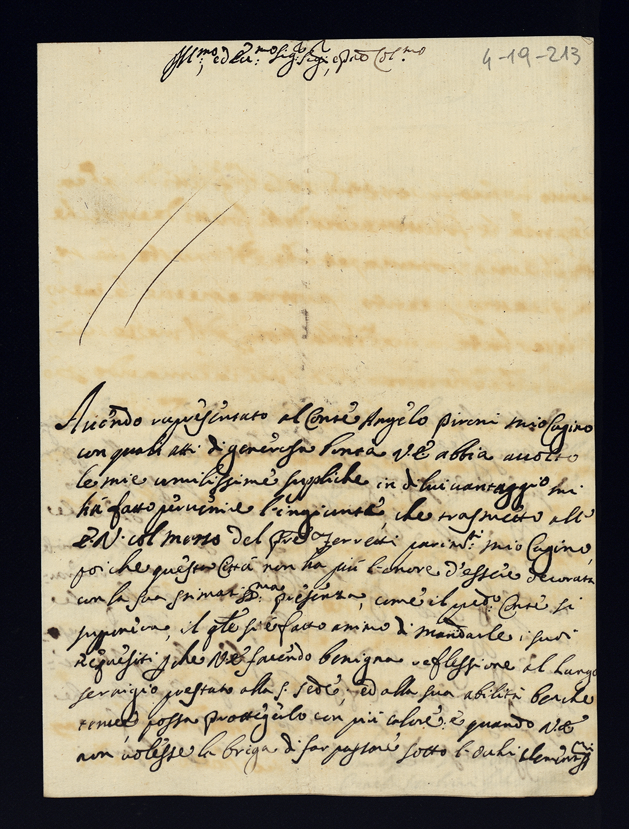 Ill:mo, ed Ecc:mo Sig: Sig:e, e Prone Col:mo
4-19-213
Avendo rapresentato al Conte Angelo Pironi mio Cugino
con quali atti di generosa bontà V.E. abbia accolto
le mie umilissime suppliche in di lui vantaggio mi
hà fatto pervenire l'ingiunta, che trasmetto all'
E.V. col mezzo del Ferretti parim:ti mio Cugino,
poiche questa Città non hà più l'onore d'essere decorata
con la sua stimat:ma presenza, come il pred:o Conte si
supponeva, il q̃le si è fatto animo di mandarle i suoi
requisiti, che V.E. facendo benigna reflessione al lungo
servigio prestato alla S. Sede, ed alla sua abilità benche
tenue possa proteggerlo con più calore: e quando V.E.
non volesse la briga di far passare sotto l'occhi